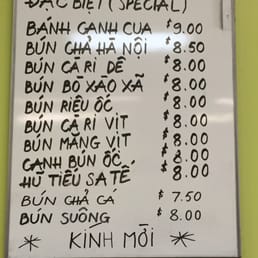 ĐẶC BIỆT (SPECIAL)
BÁNH CANH CUA $9.00
BÚN CHẢ HÀ NỘI $8.50
BÚN CÀ RI DÊ $8.00
BÚN BÒ XÀO XÃ $8.00
BÚN RIÊU ỐC $8.00
BÚN CÀ RI VỊT $8.00
BÚN MĂNG VỊT $8.00
CANH BÚN ỐC $8.00
HŨ TIẾU SA TẾ $8.00
BÚN CHẢ CÁ $7.50
BÚN SUÔNG $8.00
* KÍNH MỜI *